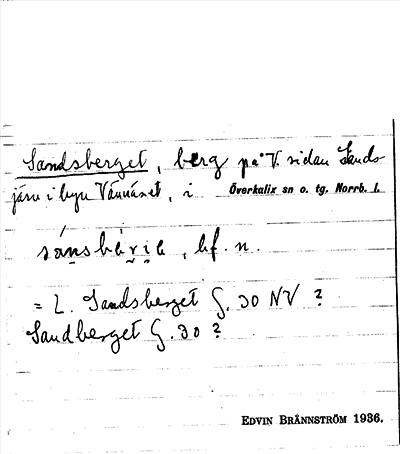 Sandsberget, berg på V. sidan Sands-
järv i byn Vännäset, i Överkalix sn o. tg. Norrb. l.
sánsbàri̯a, bf. n.
= L. Sandsberget G. 30 NV ?
Sandberget G. 30 ?
EDVIN BRÄNNSTRÖM 1936.